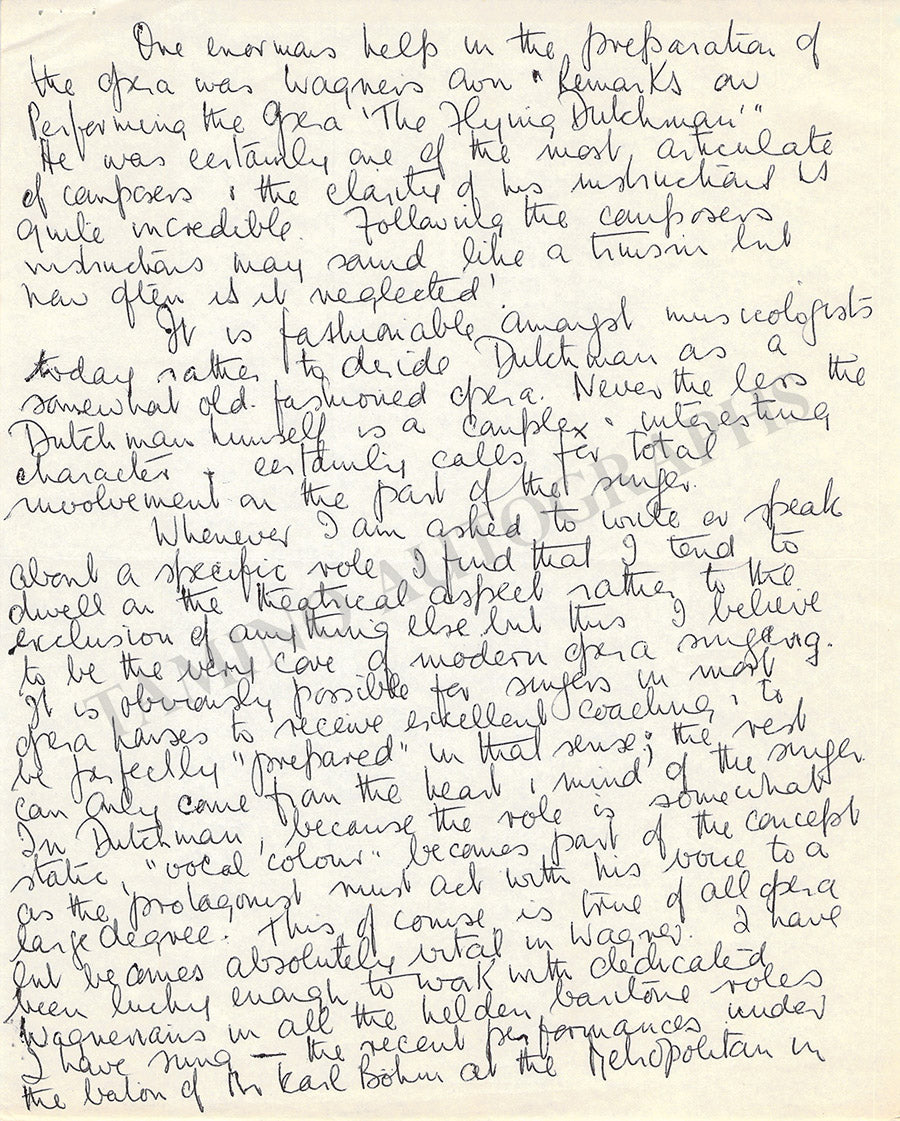 One enormous help in the preparation of
the opera was Wagner's own "Remarks on
Performing the Opera 'The Flying Dutchman'"
He was certainly one of the most articulate
of composers & the clarity of his instructions is
quite incredible. Following the composers
instructions may sound like a truism but
how often is it neglected!
It is fashionable amongst musicologists
today rather to deride Dutchman as a
somewhat old-fashioned opera. Never the less the
Dutchman himself is a complex & interesting
character & certainly calls for total
involvement on the part of the singer.
Whenever I am asked to write or speak
about a specific role I find that I tend to
dwell on the theatrical aspect rather to the
exclusion of anything else but this I believe
to be the very core of modern opera singing.
It is obviously possible for singers in most
opera houses to receive excellent coaching & to
be perfectly "prepared" in that sense; the rest
can only come from the heart & mind of the singer.
In Dutchman, because the role is somewhat
static, "vocal colour" becomes part of the concept
as the protagonist must act with his voice to a
large degree. This of course is true of all opera
but becomes absolutely vital in Wagner. I have
been lucky enough to work with dedicated
Wagnerians in all the helden baritone roles
I have sung — the recent performances under
the baton of Dr Karl Böhm at the Metropolitan in
TAMINO AUTOGRAPHS